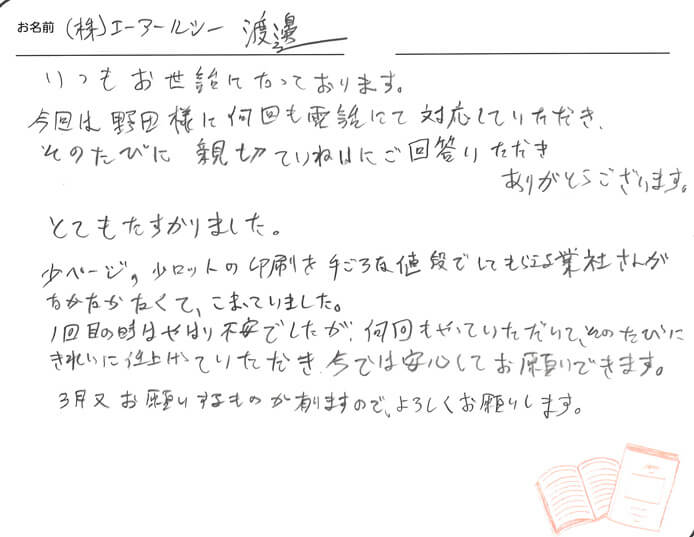 お名前 (株)エーアールシー 渡邉
いつもお世話になっております。
今回は野田様に何回も電話にて対応していただき、
そのたびに親切ていねいにご回答いただき
ありがとうございます。
とてもたすかりました。
少ページ、少ロットの印刷を手ごろな値段でしてもらえる業社さんが
なかなかなくて、こまっていました。
1回目の時はやはり不安でしたが、何回もやっていただいて、そのたびに
きれいに仕上げていただき今では安心してお願いできます。
3月又お願いするものが有りますので、よろしくお願いします。